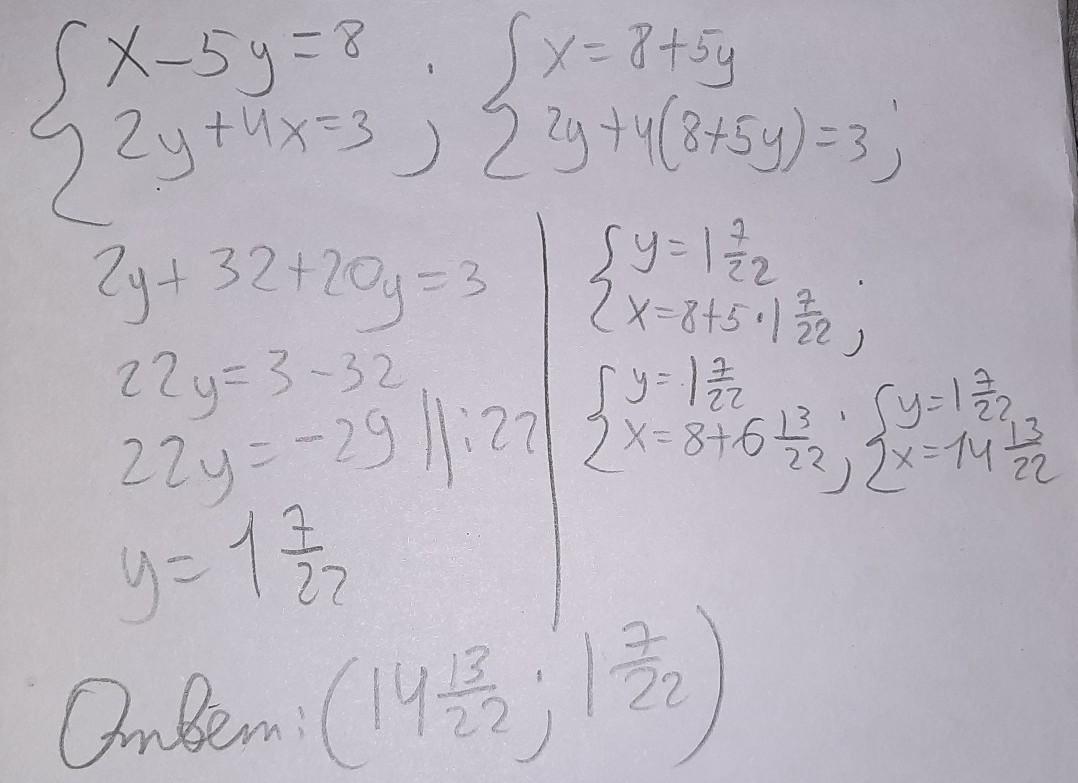 { x-5y=8 ; { x=8+5y
{ 2y+4x=3 ; { 2y+4(8+5y)=3;
2y+32+20y=3
22y=3-32
22y=-29 ||:22
y=1 7/22
{ y=1 7/22
{ x=8+5·1 7/22;
{ y=1 7/22 ; { y=1 7/22
{ x=8+6 13/22 ; { x=14 13/22
Ответ: (14 13/22; 1 7/22)